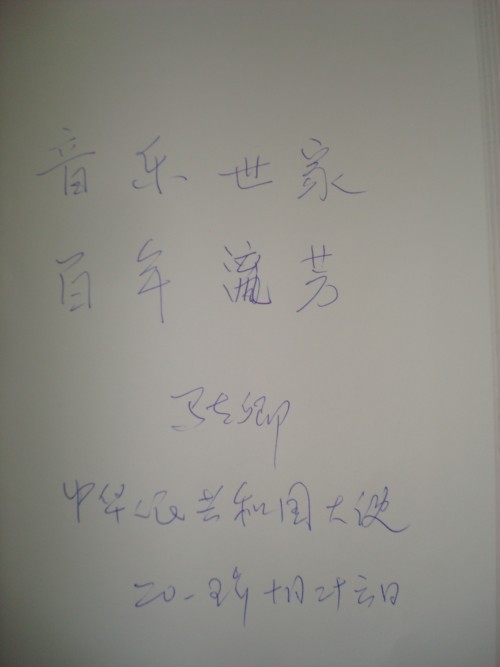 音乐世家
百年流芳
马克卿
中华人民共和国大使
二〇一五年十月二十六日